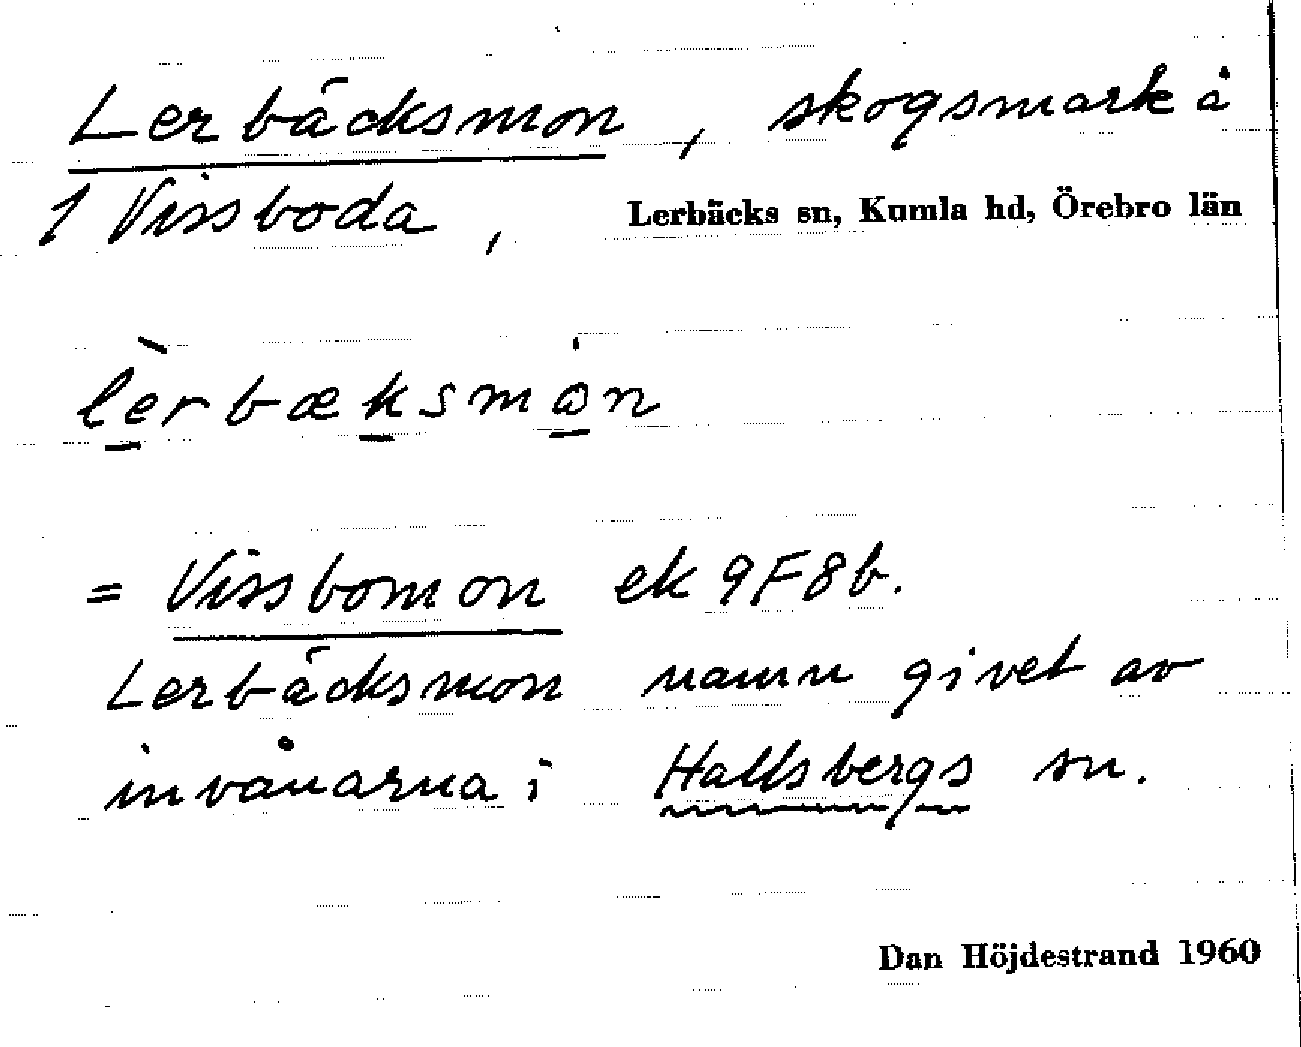 Lerbäcksmon, skogsmark å
1 Vissboda, Lerbäcks sn, Kumla hd, Örebro län
lèrbæksmån
= Vissbomon ek 9F8b.
Lerbäcksmon namn givet av
invånarna i Hallsbergs sn.
Dan Höjdestrand 1960